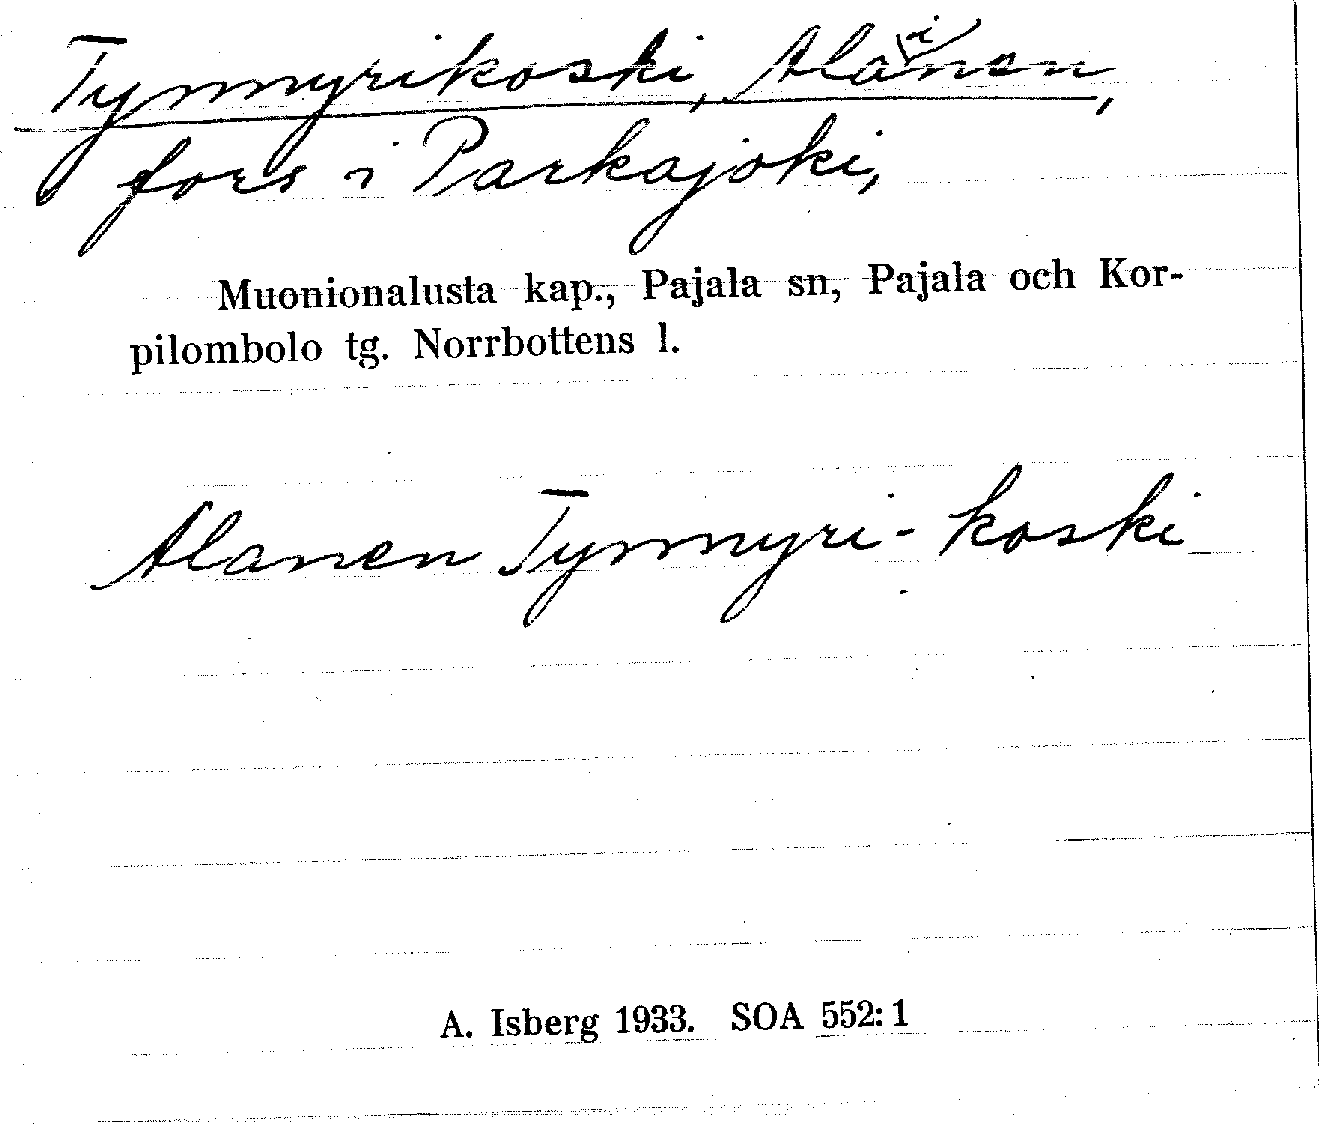 Tymmyrikoski, Alainen,
fors i Parkajoki,
Muonionalusta kap., Pajala sn, Pajala och Kor-
pilombolo tg. Norrbottens l.
Alanen Tymmyri-koski
A. Isberg 1933. SOA 552:1